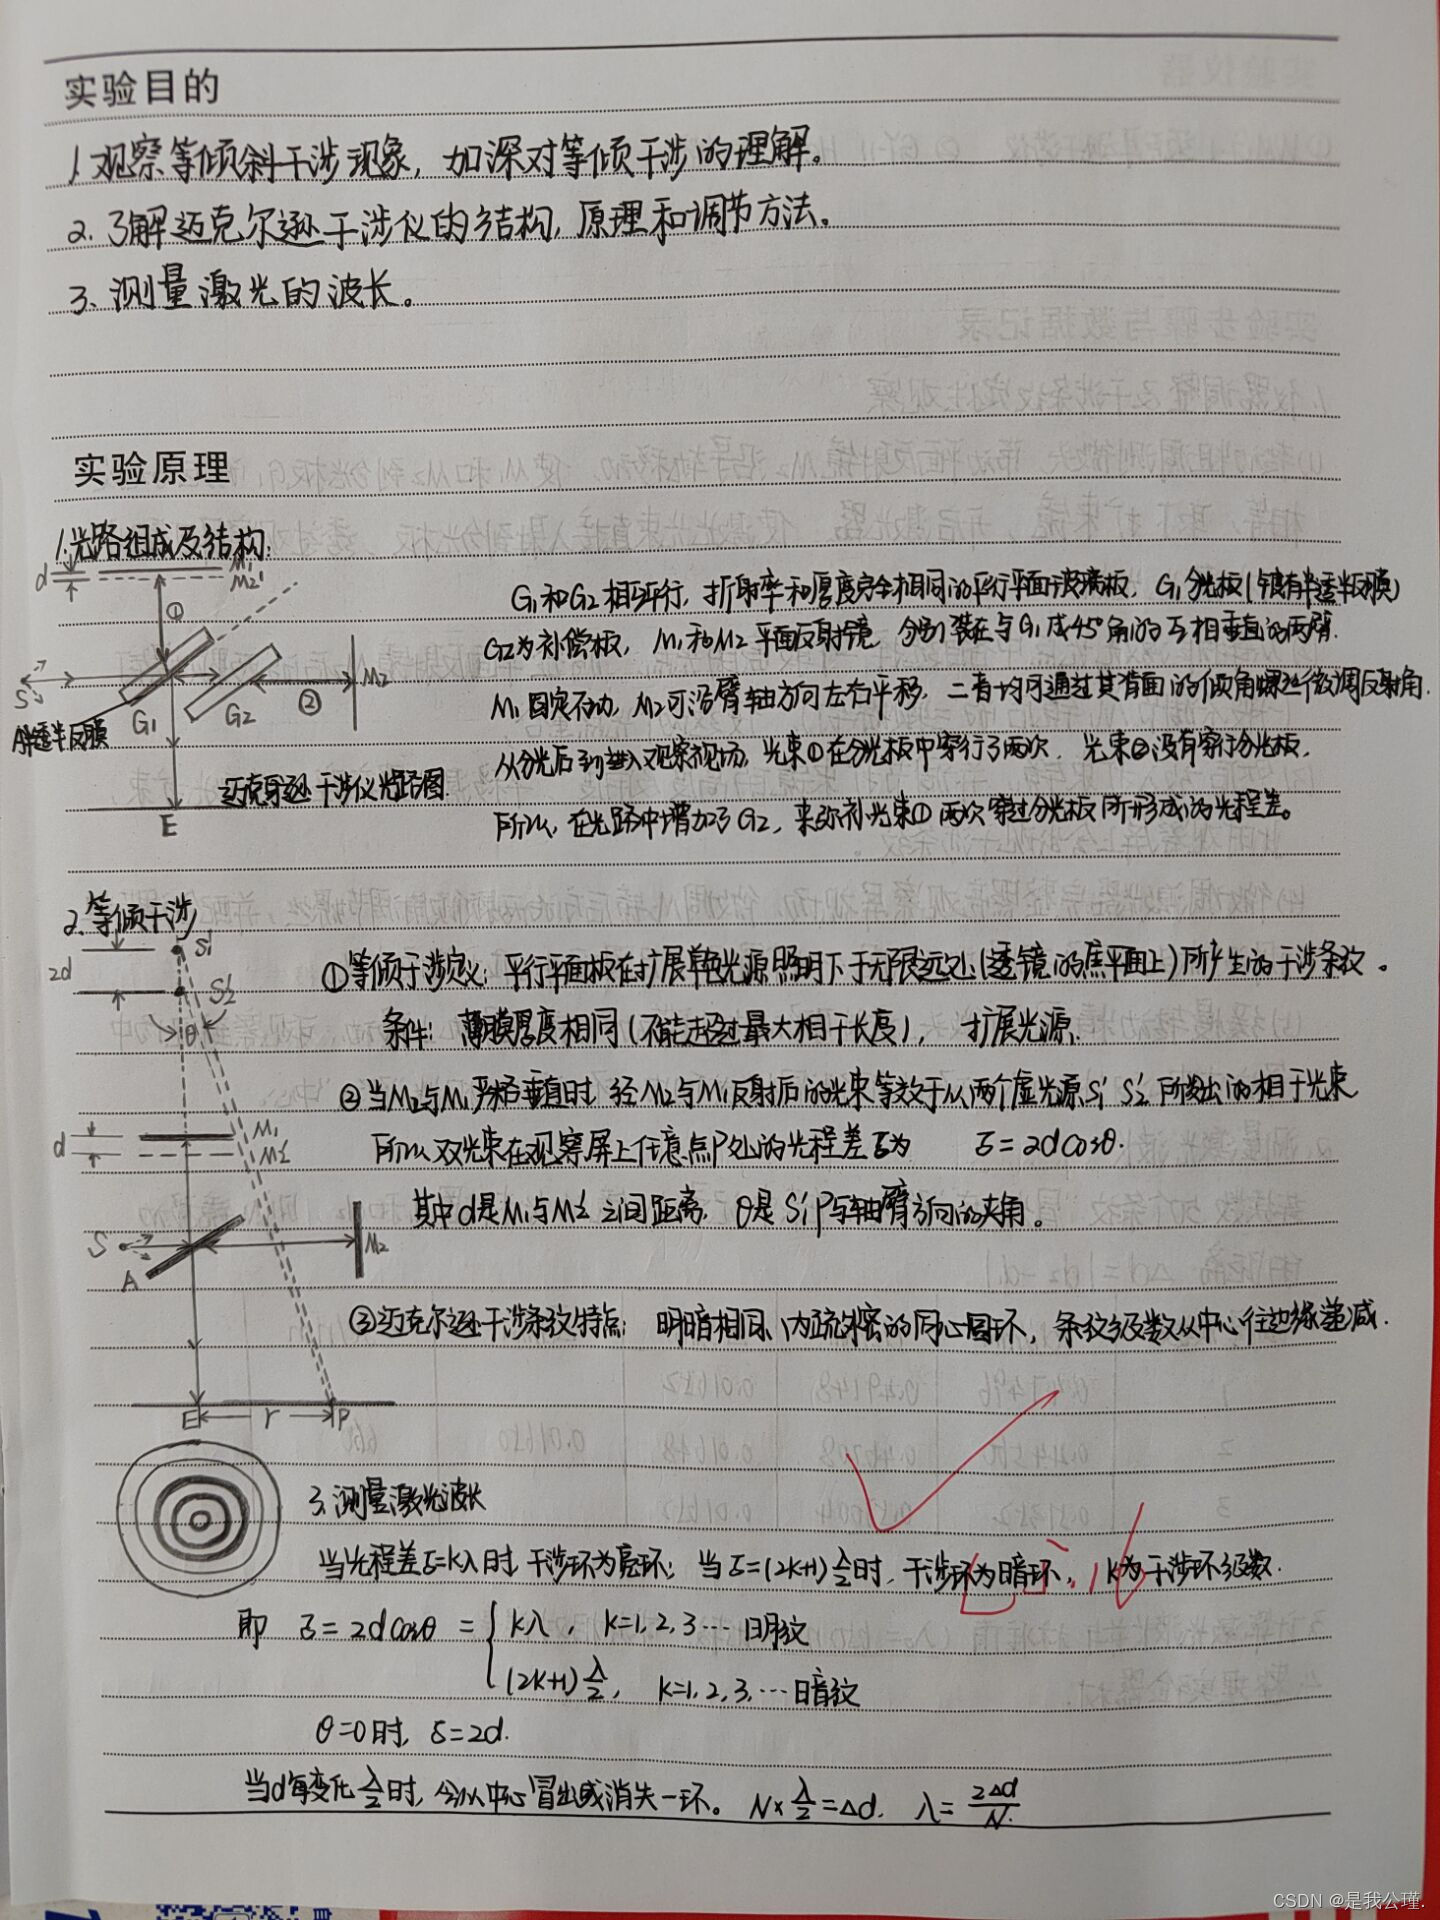 实验目的
1.观察等倾斜干涉现象，加深对等倾干涉的理解。
2.了解迈克尔逊干涉仪的结构，原理和调节方法。
3.测量激光的波长。
实验原理
1.光路组成及结构：
d
M₁
M₂'
①
S
G₁
G₂
②
M₂
半透半反膜
迈克尔逊干涉仪光路图
E
G₁和G₂相互平行，折射率和厚度完全相同的平行平面玻璃板，G₁分光板(镀有半透半反膜)
G₂为补偿板，M₁和M₂平面反射镜，分别装在与G₁成45°角的互相垂直的两臂.
M₁固定不动，M₂可沿臂轴方向左右平移，二者均可通过其背面的倾角螺丝微调反射角.
从分光后到进入观察视场，光束①在分光板中穿行了两次，光束②没有穿行分光板，
所以，在光路中增加了G₂，来弥补光束①两次穿过分光板所形成的光程差。
2.等倾干涉
2d
S₁'
S₂'
θ
d
M₁
M₂'
S
A
M₂
E
r
P
①等倾干涉定义：平行平面板在扩展单色光源照明下于无限远处(透镜的焦平面上)所产生的干涉条纹。
条件：薄膜厚度相同(不能超过最大相干长度)，扩展光源.
②当M₂与M₁严格垂直时，经M₂与M₁反射后的光束等效于从两个虚光源S₁' S₂' 所发出的相干光束
所以双光束在观察屏上任意点P处的光程差δ为 δ=2dcosθ.
其中d是M₁与M₂'之间距离，θ是S₁'P与轴臂方向的夹角。
③迈克尔逊干涉条纹特点：明暗相间、内疏外密的同心圆环，条纹级数从中心往边缘递减.
3.测量激光波长
当光程差δ=kλ时，干涉环为亮环；当δ=(2k+1)λ/2时，干涉环为暗环，k为干涉环级数.
即 δ=2dcosθ={kλ，k=1,2,3…明纹
(2k+1)λ/2，k=1,2,3,…暗纹
θ=0时，δ=2d.
当d每变化λ/2时，会从中心冒出或消失一环。N×λ/2=Δd. λ=2Δd/N.
CSDN @是我公瑾.